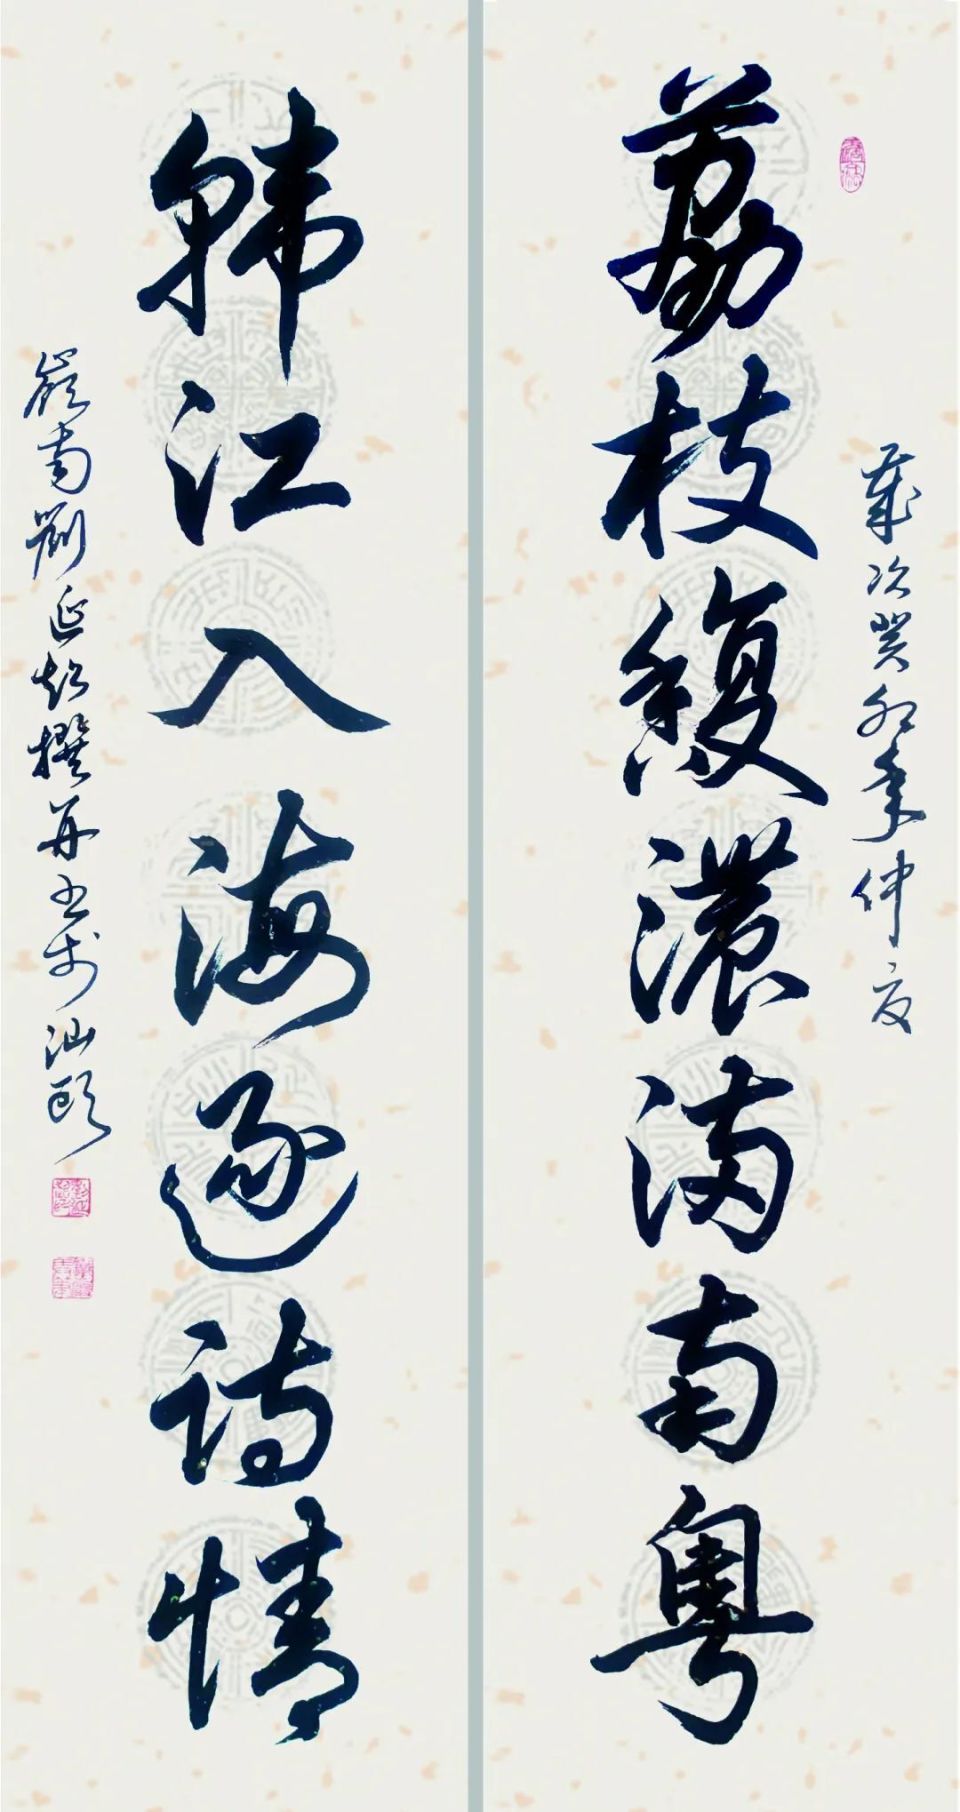 歲次癸卯年仲夏
荔枝馥濃滿南粵
韓江入海逐詩情
嶺南劉延超撰并書於汕頭